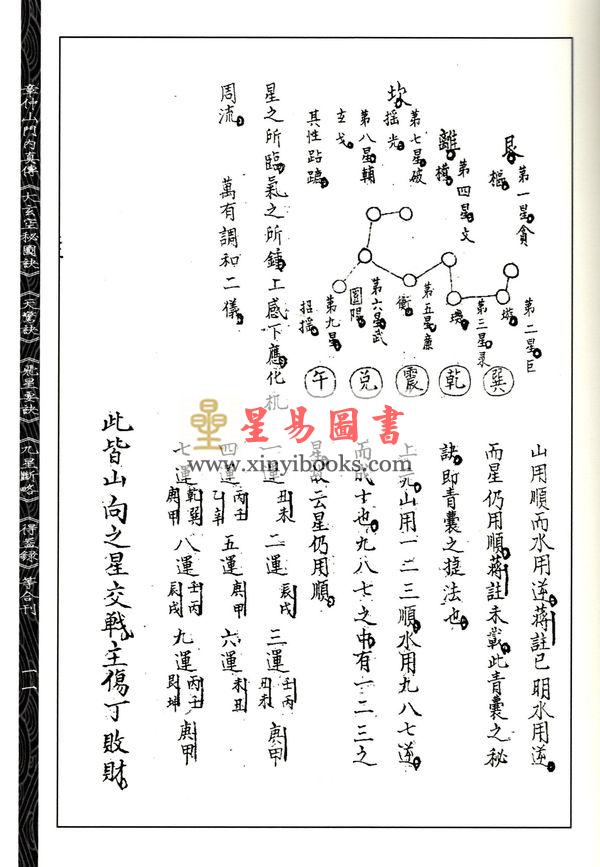 艮
第一星貪
樞
第二星巨
璇
第三星录
璣
離
第四星文
權
第五星廉
衡
第六星武
闓陽
坎
第七星破
搖光
第八星輔
玄戈
其性站蹠
第九星
招搖
巽
乾
震
兌
午
星之所臨氣之所鍾上感下應化机
周流
萬有調和二儀
山用順而水用逆蔣註已明水用逆
而星仍用順蔣註未載此青囊之秘
訣即青囊之捷法也
上元山用一二三順水用九八七逆
而成士也九八七之中有一二三之
星故云星仍用順
一運丑未
二運辰戌
三運壬丙丑未庚甲
四運丙壬乙辛
五運庚甲
六運未丑
七運乾巽庚甲
八運壬丙辰戌
九運丙壬艮坤庚甲
此皆山向之星交戰主傷丁敗財
星易圖書
www.xinyibooks.com
章仲山門內真傳《大玄空秘圖訣》《天驚訣》《飛星要訣》《九星斷略》《得益錄》等合刊
一一